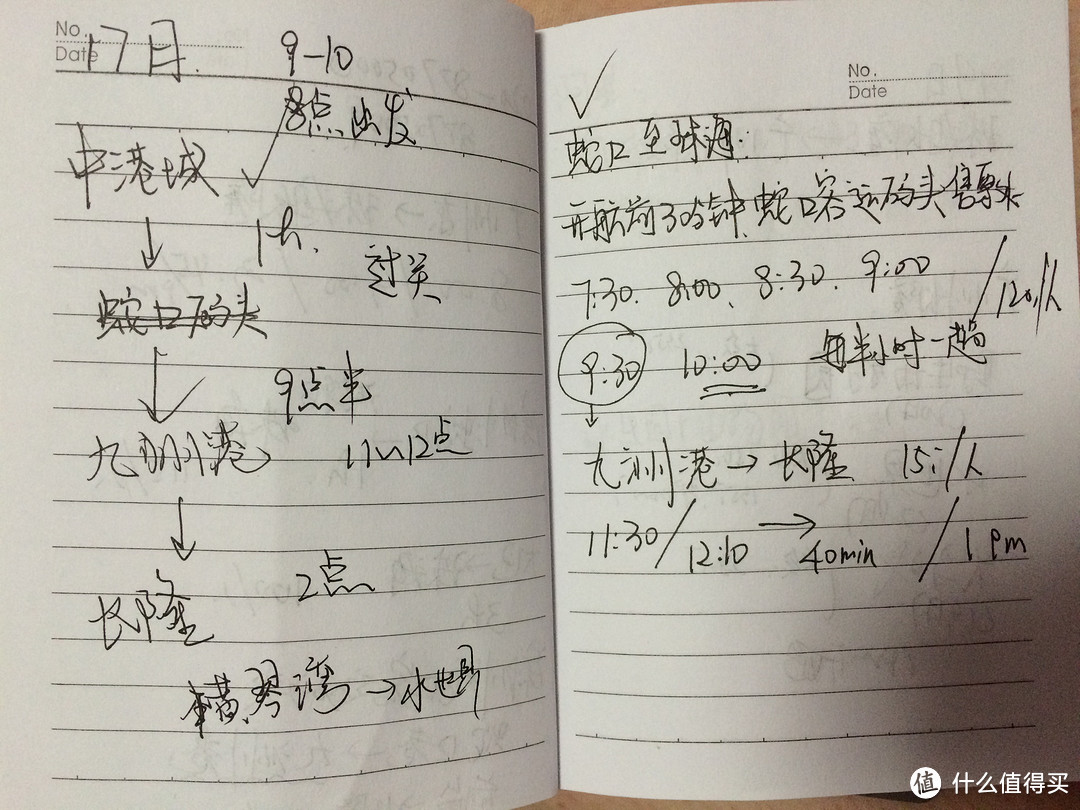 No.
Date
17日.
9-10
8点出发
中港城
1h.
过关
蛇口码头
9点半
九洲港
11~12点
2点
长隆
横琴湾→水世界
No.
Date
蛇口至珠海:
开航前30分钟,蛇口客运码头售票
7:30、8:00、8:30、9:00
120/人
9:30 10:00 每半小时一趟
九洲港→长隆 15/人
11:30/12:10 → 40min / 1pm
值 什么值得买